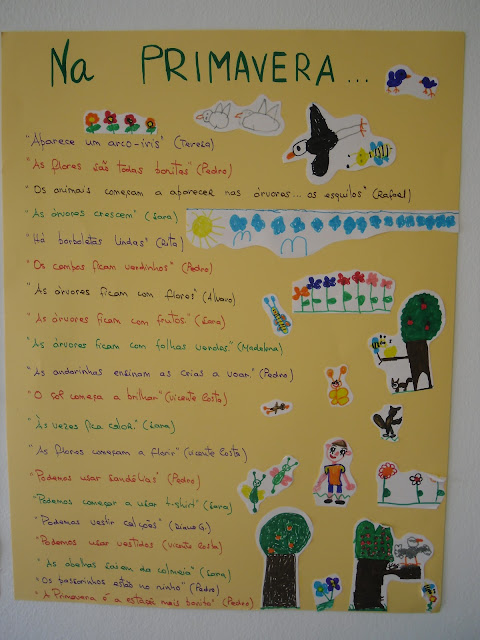 Na PRIMAVERA...
"Aparece um arco-íris" (Teresa)
"As flores são todas bonitas" (Pedro)
"Os animais começam a aparecer nas árvores... os esquilos" (Rafael)
"As árvores crescem" (Sara)
"Há borboletas lindas" (Rita)
"Os campos ficam verdinhos" (Pedro)
"As árvores ficam com flores" (Álvaro)
"As árvores ficam com frutos." (Sara)
"As árvores ficam com folhas verdes." (Madalena)
"As andorinhas ensinam as crias a voar." (Pedro)
"O sol começa a brilhar" (Vicente Costa)
"Às vezes fica calor." (Sara)
"As flores começam a florir" (Vicente Costa)
"Podemos usar sandálias" (Pedro)
"Podemos começar a usar t-shirt" (Sara)
"Podemos vestir calções" (Diana G.)
"Podemos usar vestidos" (Vicente Costa)
"As abelhas saem da colmeia" (Sara)
"Os passarinhos estão no ninho" (Pedro)
"A Primavera é a estação mais bonita" (Pedro)